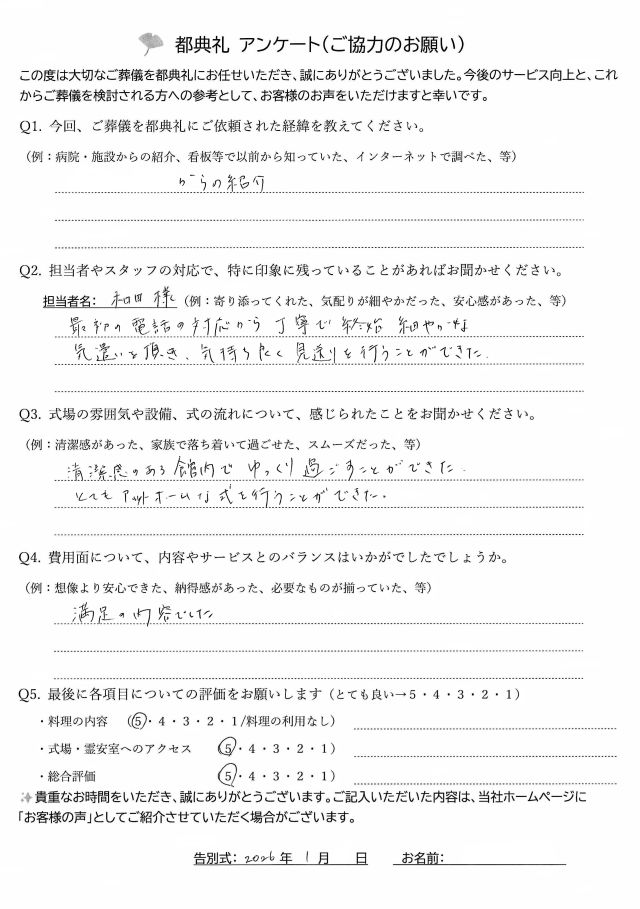 都典礼 アンケート(ご協力のお願い)
この度は大切なご葬儀を都典礼にお任せいただき、誠にありがとうございました。今後のサービス向上と、これ
からご葬儀を検討される方への参考として、お客様のお声をいただけますと幸いです。
Q1. 今回、ご葬儀を都典礼にご依頼された経緯を教えてください。
（例：病院・施設からの紹介、看板等で以前から知っていた、インターネットで調べた、等）
からの紹介
Q2. 担当者やスタッフの対応で、特に印象に残っていることがあればお聞かせください。
担当者名： 和田 様 （例：寄り添ってくれた、気配りが細やかだった、安心感があった、等）
最初の電話の対応から丁寧で終始細やかな
気遣いを頂き、気持ち良く見送りを行うことができた.
Q3. 式場の雰囲気や設備、式の流れについて、感じられたことをお聞かせください。
（例：清潔感があった、家族で落ち着いて過ごせた、スムーズだった、等）
清潔感のある館内でゆっくり過ごすことができた.
とてもアットホームな式を行うことができた.
Q4. 費用面について、内容やサービスとのバランスはいかがでしたでしょうか。
（例：想像より安心できた、納得感があった、必要なものが揃っていた、等）
満足の内容でした
Q5. 最後に各項目についての評価をお願いします（とても良い→５・４・３・２・１）
・料理の内容 （5・４・３・２・１/料理の利用なし）
・式場・霊安室へのアクセス （5・４・３・２・１）
・総合評価 （5・４・３・２・１）
貴重なお時間をいただき、誠にありがとうございます。ご記入いただいた内容は、当社ホームページに
「お客様の声」としてご紹介させていただく場合がございます。
告別式： 2026 年 1 月 日 お名前：